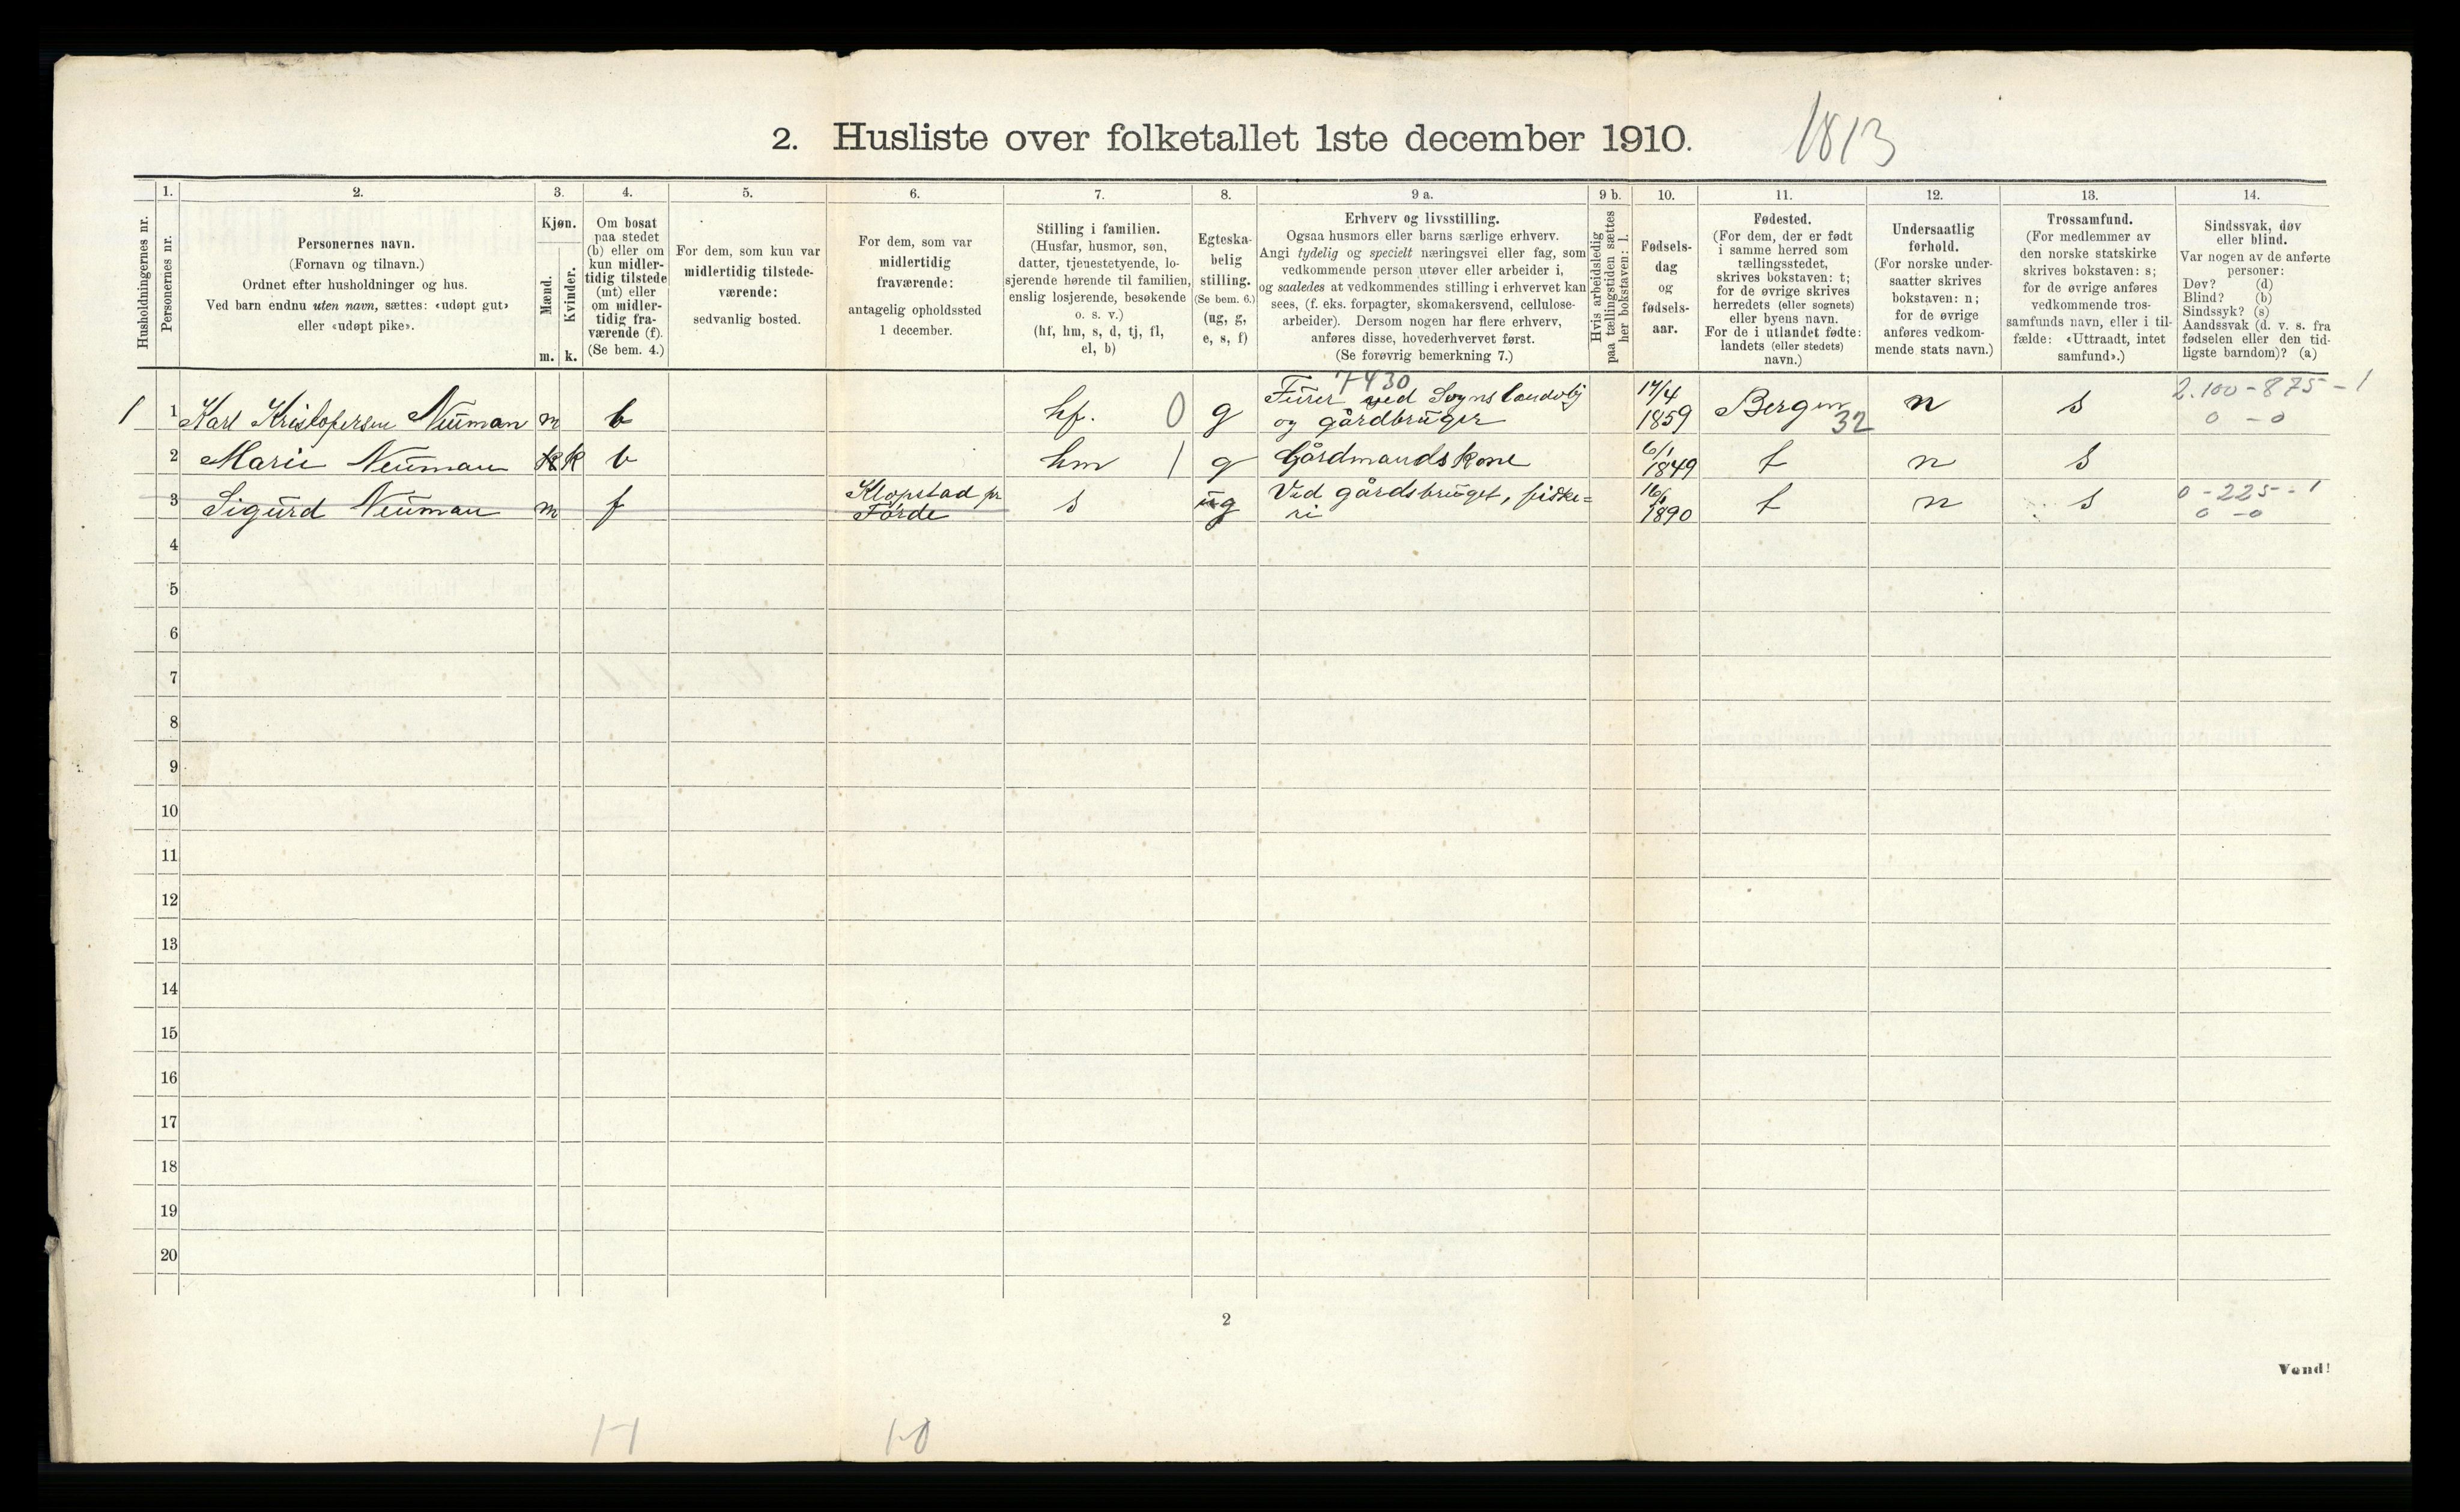 2. Husliste over folketallet 1ste december 1910.
1813
Husholdningernes nr.
1.
Personernes nr.
2.
Personernes navn.
(Fornavn og tilnavn.)
Ordnet efter husholdninger og hus.
Ved barn endnu uten navn, sættes: «udøpt gut»
eller «udøpt pike».
3.
Kjøn.
Mænd.
Kvinder.
m.
k.
4.
Om bosat
paa stedet
(b) eller om
kun midler-
tidig tilstede
(mt) eller
om midler-
tidig fra-
værende (f).
(Se bem. 4.)
5.
For dem, som kun var
midlertidig tilstede-
værende:
sedvanlig bosted.
6.
For dem, som var
midlertidig
fraværende:
antagelig opholdssted
1 december.
7.
Stilling i familien.
(Husfar, husmor, søn,
datter, tjenestetyende, lo-
sjerende hørende til familien,
enslig losjerende, besøkende
o. s. v.)
(hf, hm, s, d, tj, fl,
el, b)
8.
Egteska-
belig
stilling.
(Se bem. 6.)
(ug, g,
e, s, f)
9 a.
Erhverv og livsstilling.
Ogsaa husmors eller barns særlige erhverv.
Angi tydelig og specielt næringsvei eller fag, som
vedkommende person utøver eller arbeider i,
og saaledes at vedkommendes stilling i erhvervet kan
sees, (f. eks. forpagter, skomakersvend, cellulose-
arbeider). Dersom nogen har flere erhverv,
anføres disse, hovederhvervet først.
(Se forøvrig bemerkning 7.)
9 b.
Hvis arbeidsledig
paa tællingstiden sættes
her bokstaven: l.
10.
Fødsels-
dag
og
fødsels-
aar.
11.
Fødested.
(For dem, der er født
i samme herred som
tællingsstedet,
skrives bokstaven: t;
for de øvrige skrives
herredets (eller sognets)
eller byens navn.
For de i utlandet fødte:
landets (eller stedets)
navn.)
12.
Undersaatlig
forhold.
(For norske under-
saatter skrives
bokstaven: n;
for de øvrige
anføres vedkom-
mende stats navn.)
13.
Trossamfund.
(For medlemmer av
den norske statskirke
skrives bokstaven: s;
for de øvrige anføres
vedkommende tros-
samfunds navn, eller i til-
fælde: «Uttraadt, intet
samfund».)
14.
Sindssvak, døv
eller blind.
Var nogen av de anførte
personer:
Døv? (d)
Blind? (b)
Sindssyk? (s)
Aandssvak (d. v. s. fra
fødselen eller den tid-
ligste barndom)? (a)
7430
1 1 Karl Kristofersen Neuman m b hf. 0 g Fürer ved Sogns landvbj 17/4 Bergen n s 2.100-875-1
og gårdbruger 1859 32 0 -0
2 Marie Neuman k b hm 1 g Gårdmandskone 6/1 1849 t n s
3 Sigurd Neuman m f Klopstad pr s ug Ved gårdsbruget, fiske= 16/1 t n s 0-225-1
Førde ri 1890 0 -0
4
5
6
7
8
9
10
11
12
13
14
15
16
17
18
19
20
2
Vend!
1-1
1-0